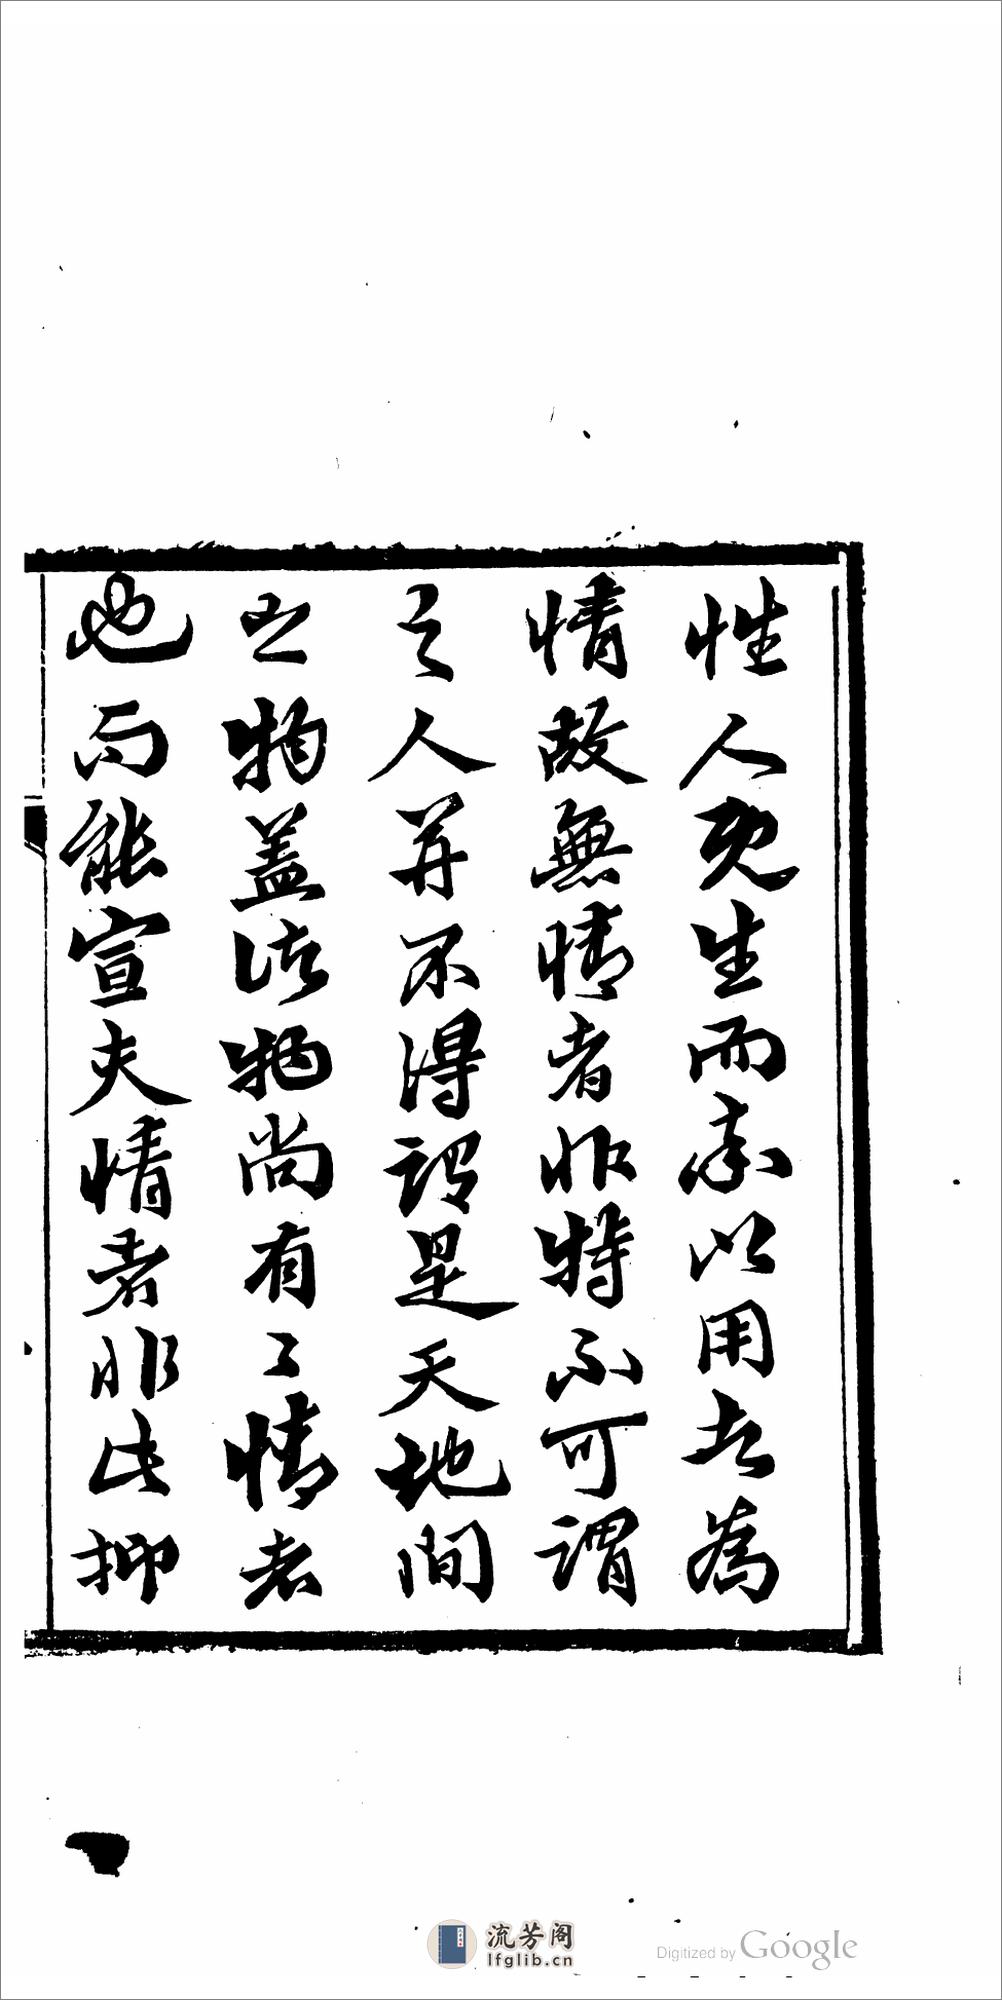 性人既生而以用者為
情故無情者非特不可謂
之人并不得謂是天地間
之物蓋諸物尚有〻情者
也而能宣夫情者非此抑
流芳阁
lfglib.cn
Digitized by Google